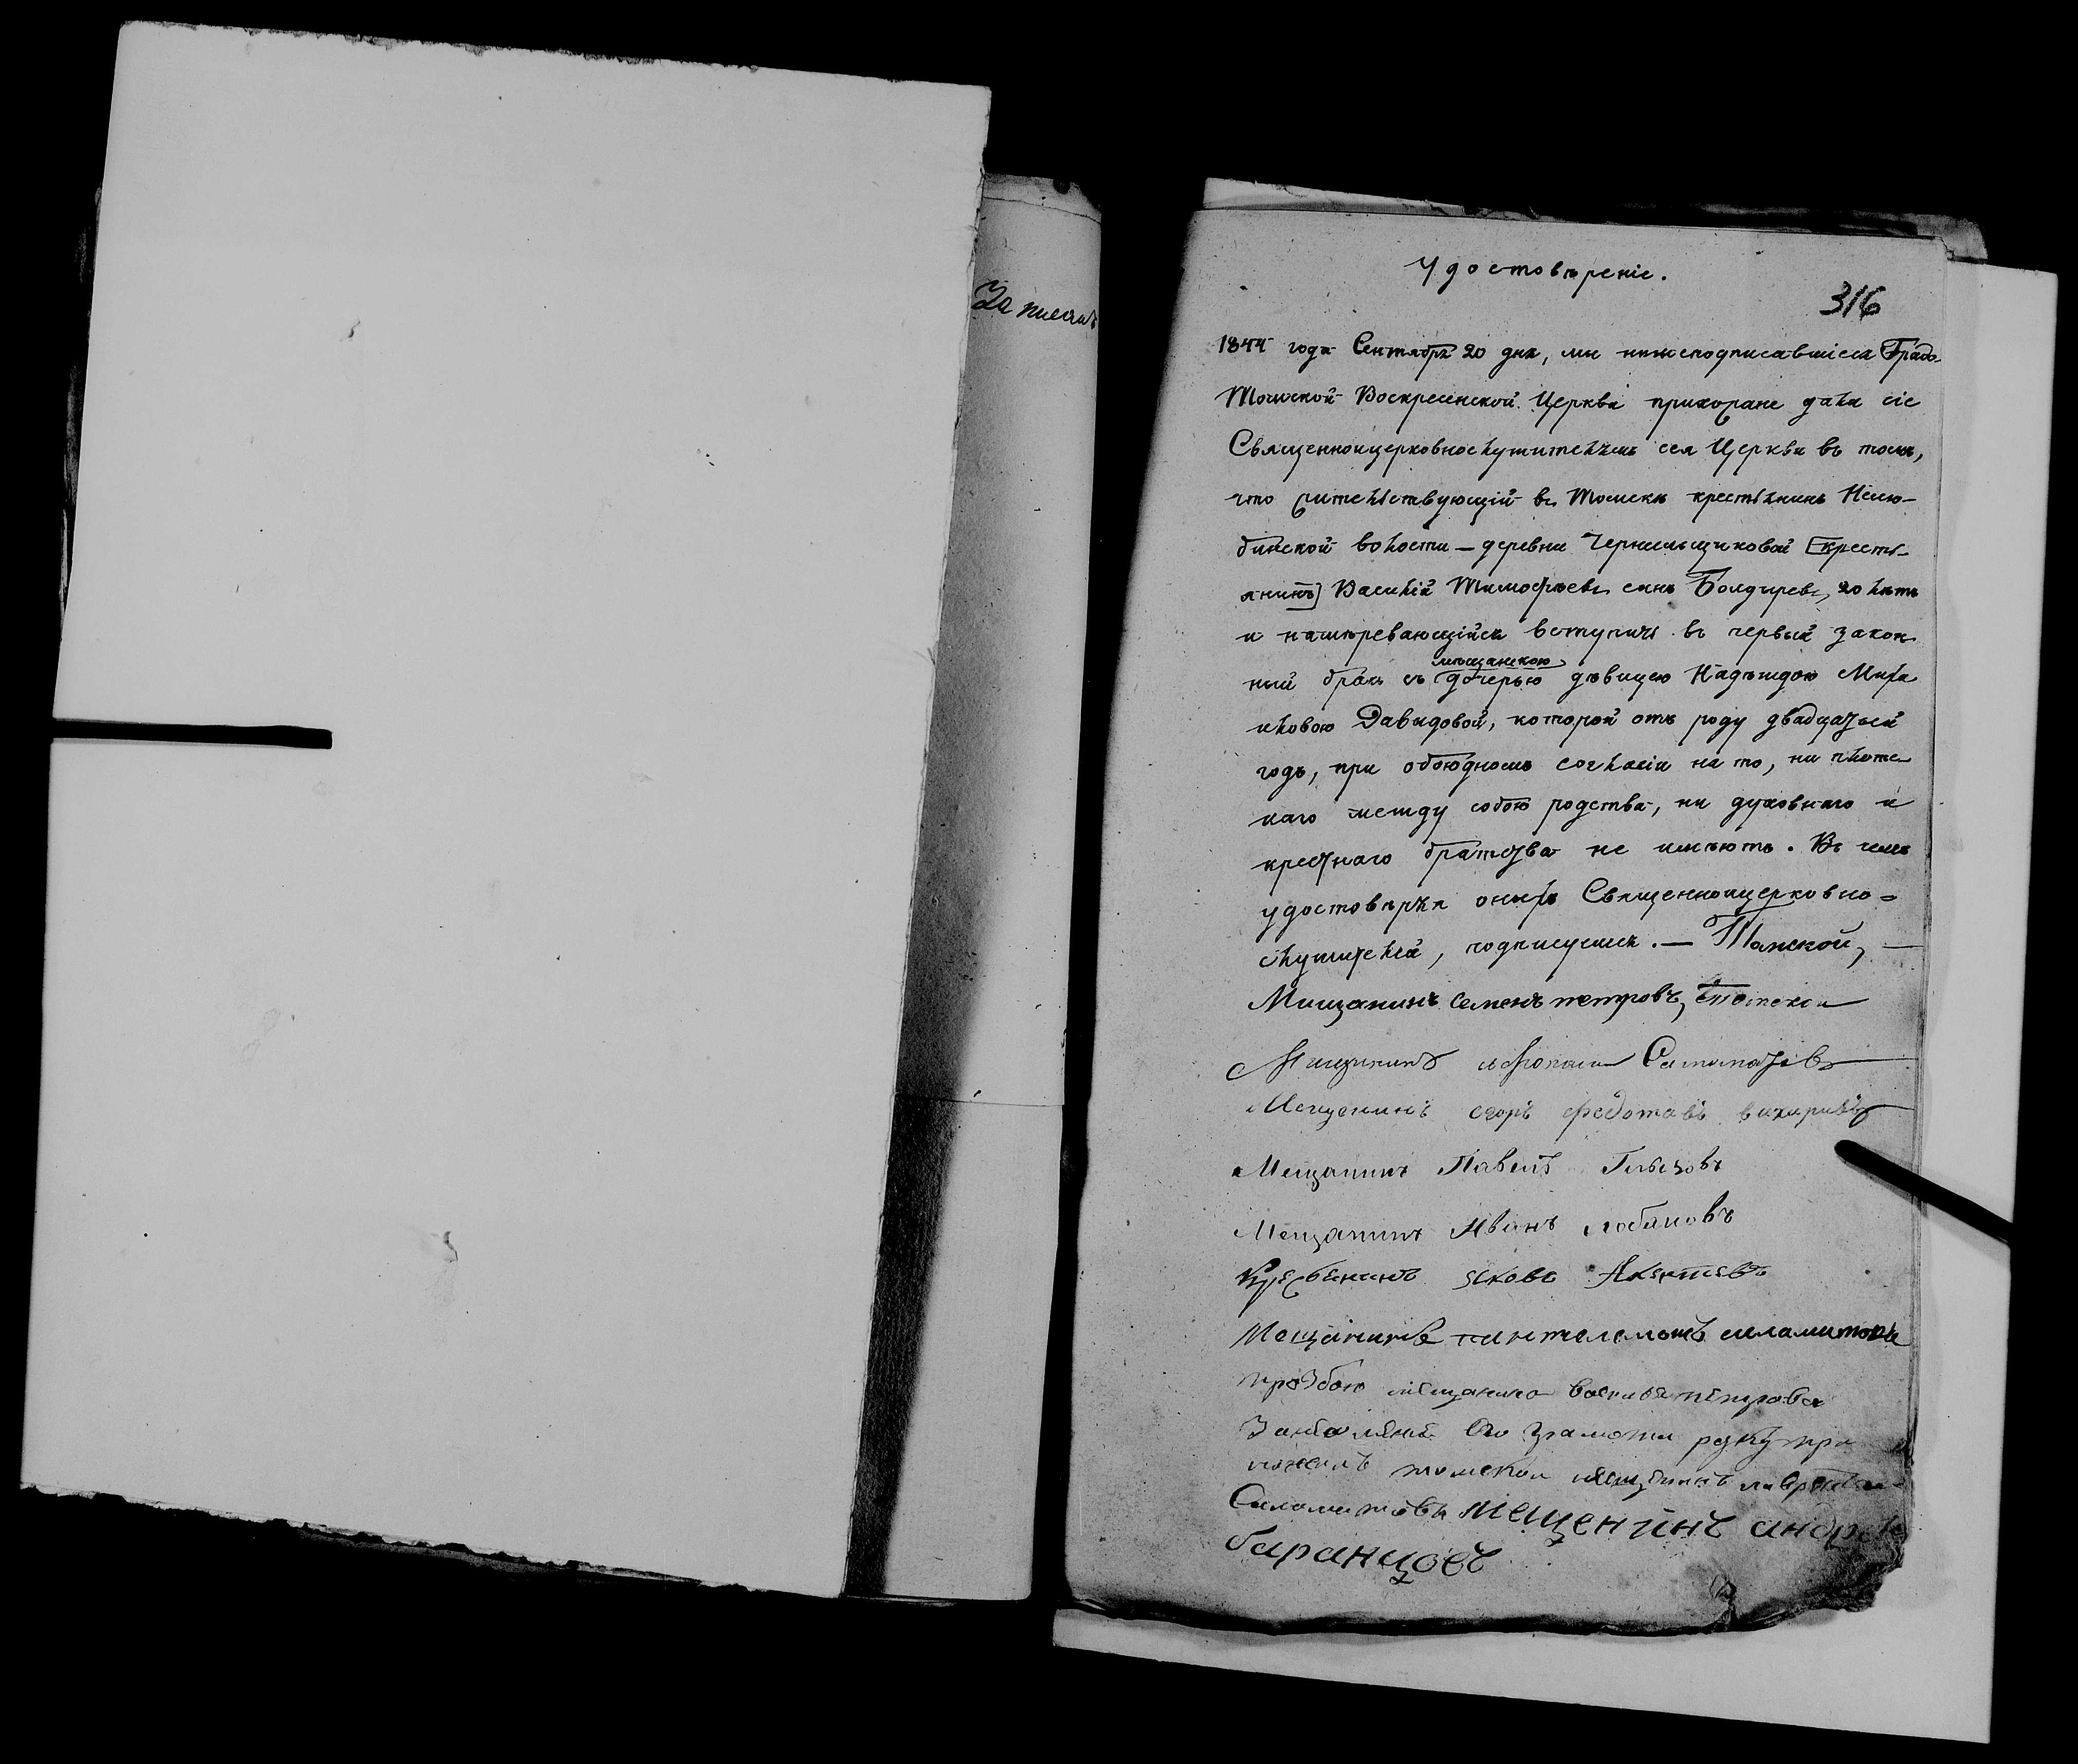 За писать
Удостовѣреніе.
316
1844 года Сентября 20 дня, мы нижеподписавшіеся Градо-
Томской Воскресенской Церкви прихожане дали сіе
Священноцерковнослужителямъ сея Церкви въ томъ,
что жительствующій въ Томскѣ крестьянинъ Нелю-
бинской волости — деревни Чернильщиковой [кресть-
янинъ] Василій Тимофѣевъ сынъ Болдыревъ, 20 лѣтъ
и намѣревающійся вступить въ первый закон
мѣщанскою
ный бракъ съ дочерью дѣвицею Надеждою Миха
иловою Давыдовой, которой отъ роду двадцатый
годъ, при обоюдномъ согласіи на то, ни плотс
каго между собою родства, ни духовнаго и
крестнаго братства не имѣютъ. Въ чемъ
удостовѣряя оныхъ Священноцерковно-
служителей, подписуемся. — Томской,
Мищанинъ семенъ петровъ, Томской
Мищининъ
Мещенинъ егоръ федотавъ вихиривъ
Мещанинъ Павелъ
Мещанинъ Иванъ лобановъ
яковъ
Мещанинъ пантелемонъ
прозбою мещанина василья петрова
грамоты руку при
ложилъ томской мещанинъ
мещенинъ андрей
баранцовъ